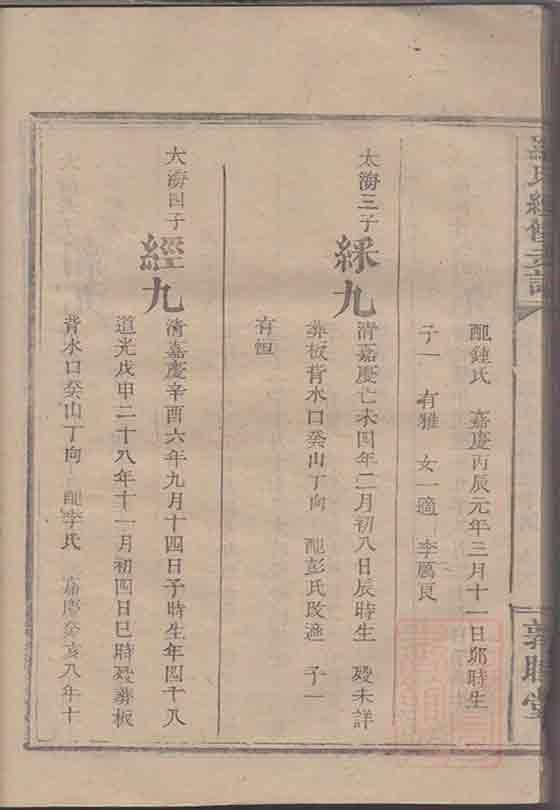 氏續修
敦睦堂
配鍾氏 嘉慶丙辰元年三月十一日邜時生
子一 有雅 女一適 李萬良
太海三子
綵九
清嘉慶亡未四年二月初八日辰時生 殁未詳
葬板背水口癸山丁向 配彭氏改適 子一
有恒
大海四子
經九
清嘉慶辛酉六年九月十四日子時生年四十八
道光戊甲二十八年十一月初四日巳時殁葬板
背水口癸山丁向 配李氏 嘉慶癸亥八年十